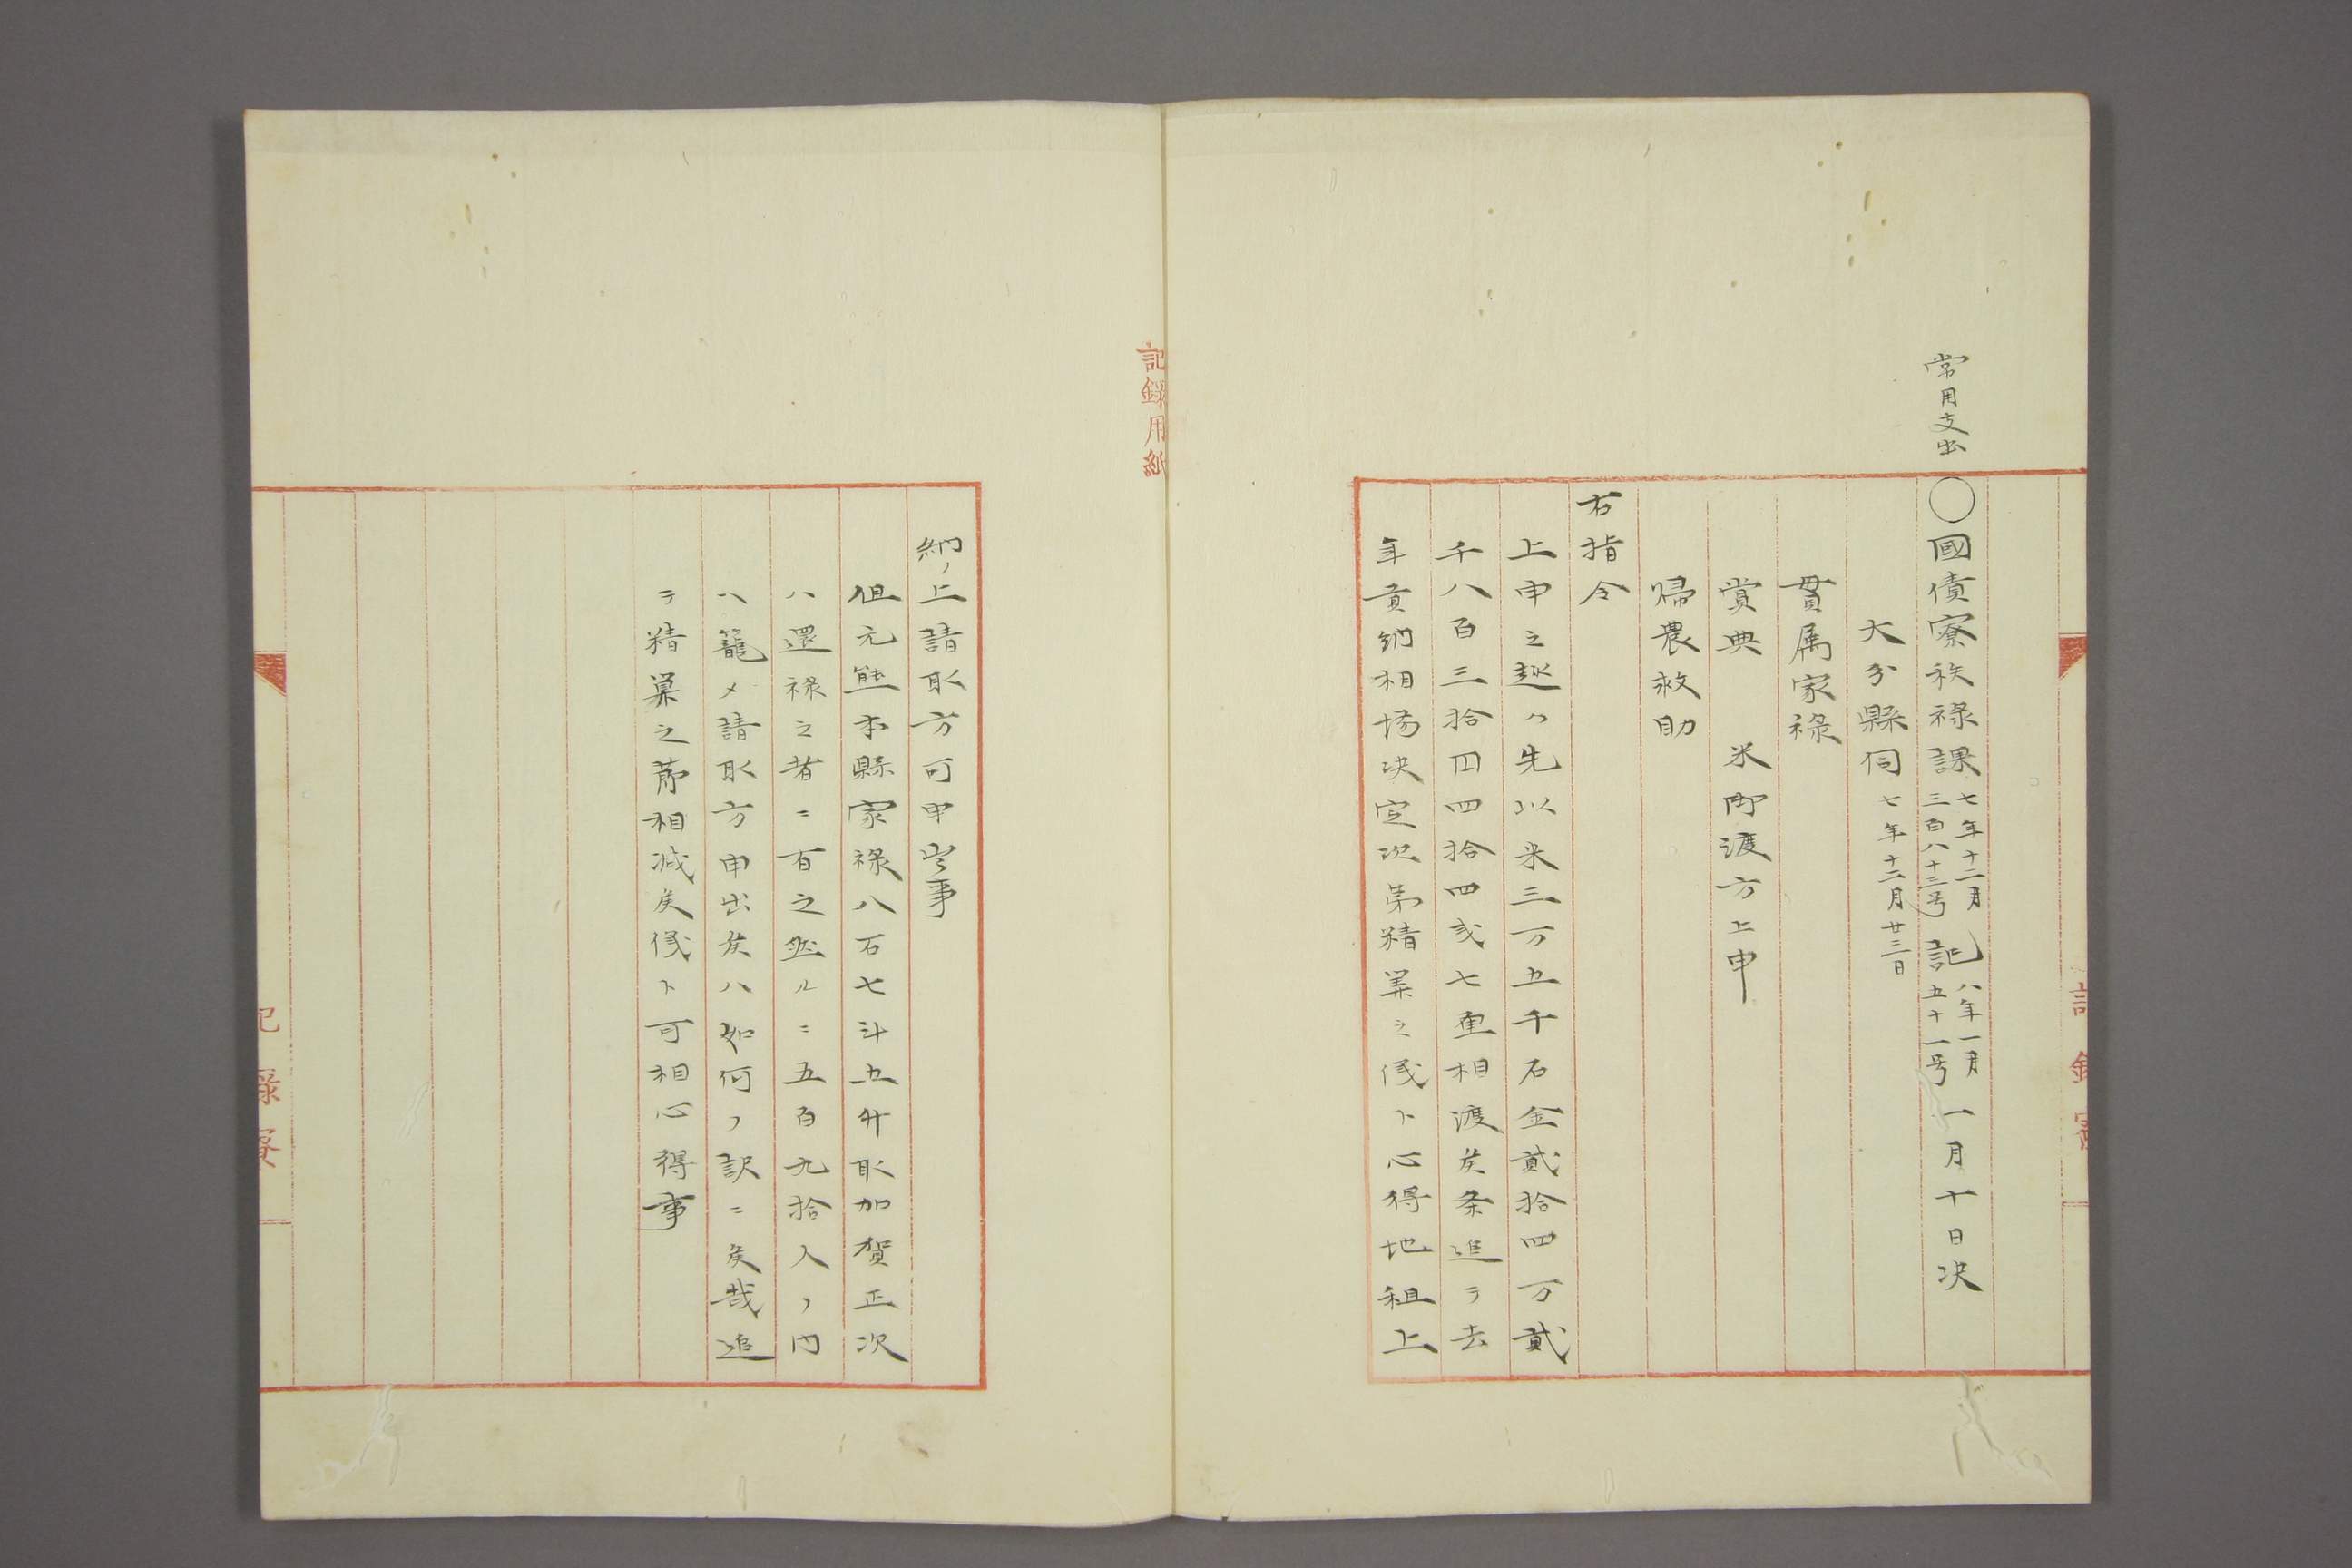 常用支出
〇國債寮秩禄課 七年十二月 三百八十三号 記 八年一月 五十一号 一月十日决
大分縣伺 七年十二月廿三日
貫属家禄
賞典 米御渡方上申
帰農救助
右指令
上申之趣ハ先以米三万五千石金貳拾四万貳
千八百三拾四円四拾四戋七厘相渡候条追テ去
年貢納相場决定次第精算之儀ト心得地租上
納ノ上請取方可申出事
但元熊本縣家禄八石七斗五升取加賀正次
ハ還禄之者ニ有之然ルニ五百九拾人ノ内
ヘ籠メ請取方申出候ハ如何ノ訳ニ候哉追
テ精算之節相减候儀ト可相心得事
記録用紙
記録寮
記録寮